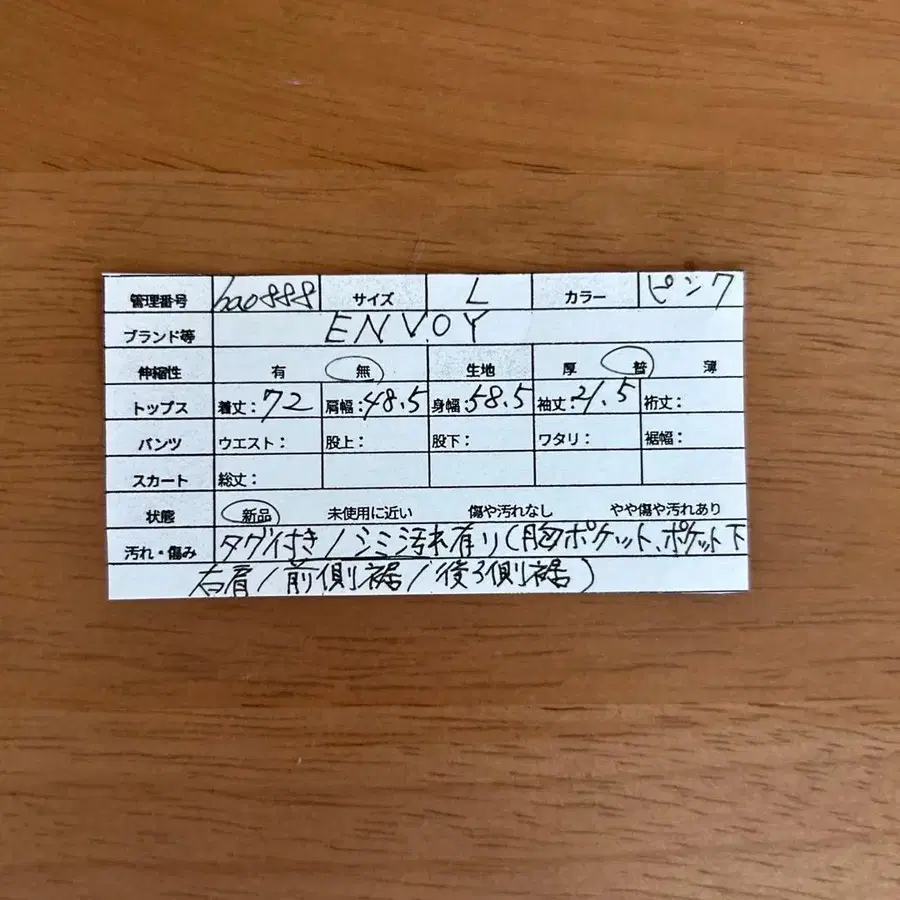 管理番号 bao888 サイズ L カラー ピンク
ブランド等 ENVOY
伸縮性 有 無 生地 厚 普 薄
トップス 着丈:72 肩幅:48.5 身幅:58.5 袖丈:21.5 裄丈:
パンツ ウエスト: 股上: 股下: ワタリ: 裾幅:
スカート 総丈:
状態 新品 未使用に近い 傷や汚れなし やや傷や汚れあり
汚れ・傷み タグ付き/シミ汚れ有り(胸ポケット、ポケット下
右肩/前側裾/後ろ側裾)